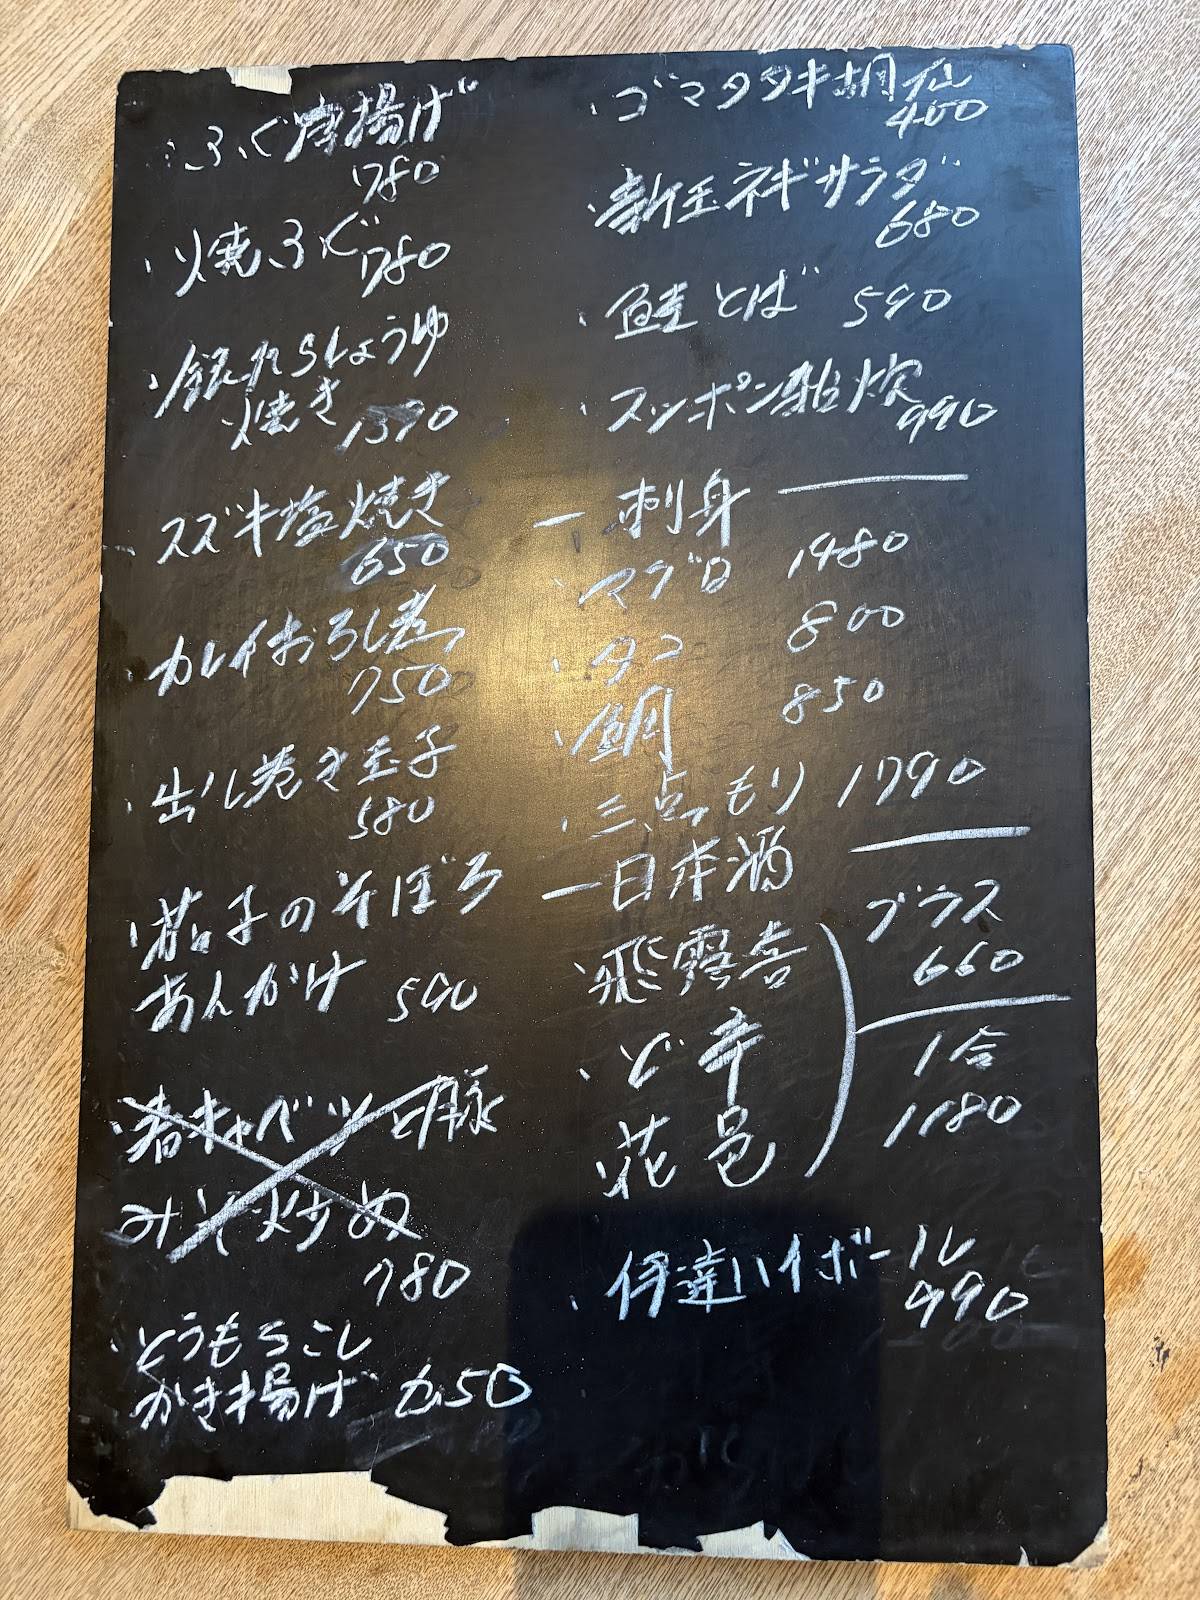 ・ふぐ唐揚げ
780
・焼ふぐ
780
・銀たらしょうゆ
焼き 1390
・スズキ塩焼き
650
・カレイおろし煮
750
・出し巻き玉子
580
・茄子のそぼろ
あんかけ 590
・春キャベツと豚
みそ炒め
780
・とうもろこし
かき揚げ 650
・ゴマタタキ胡
400
・新玉ネギサラダ
680
・鮭とば 590
・スッポン雑炊
990
一刺身
・マグロ 1480
・タコ 800
・鯛 850
・三点もり 1790
一日本酒
・飛露喜
・ど辛
・花邑
グラス
660
1合
1180
・伊達ハイボール
990